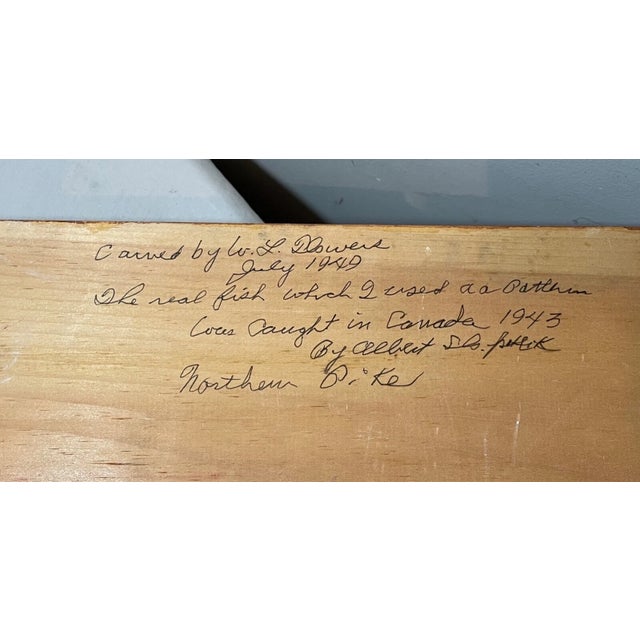 Carved by W. L. Flowers
July 1949
The real fish which I used as a Pattern
was caught in Canada 1943
By Albert
Northern Pike